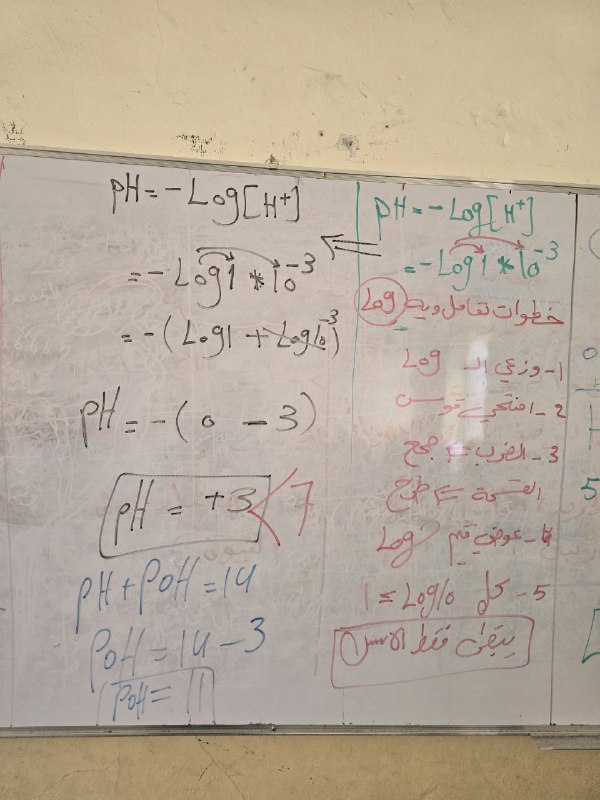 pH = - Log[H+]
= - Log 1 * 10^-3
= - (Log 1 + Log 10^-3)
pH = - ( 0 - 3 )
pH = +3 < 7
pH + POH = 14
POH = 14 - 3
POH = 11
pH = - Log[H+]
= - Log 1 * 10^-3
خطوات تعامل ويه Log
1- وزعي الـ Log
2- افتحي قوس
3- الضرب ⇐ جمع
القسمة ⇐ طرح
4- عوض قيم Log
5- كل Log10 = 1
يبقى فقط الاس